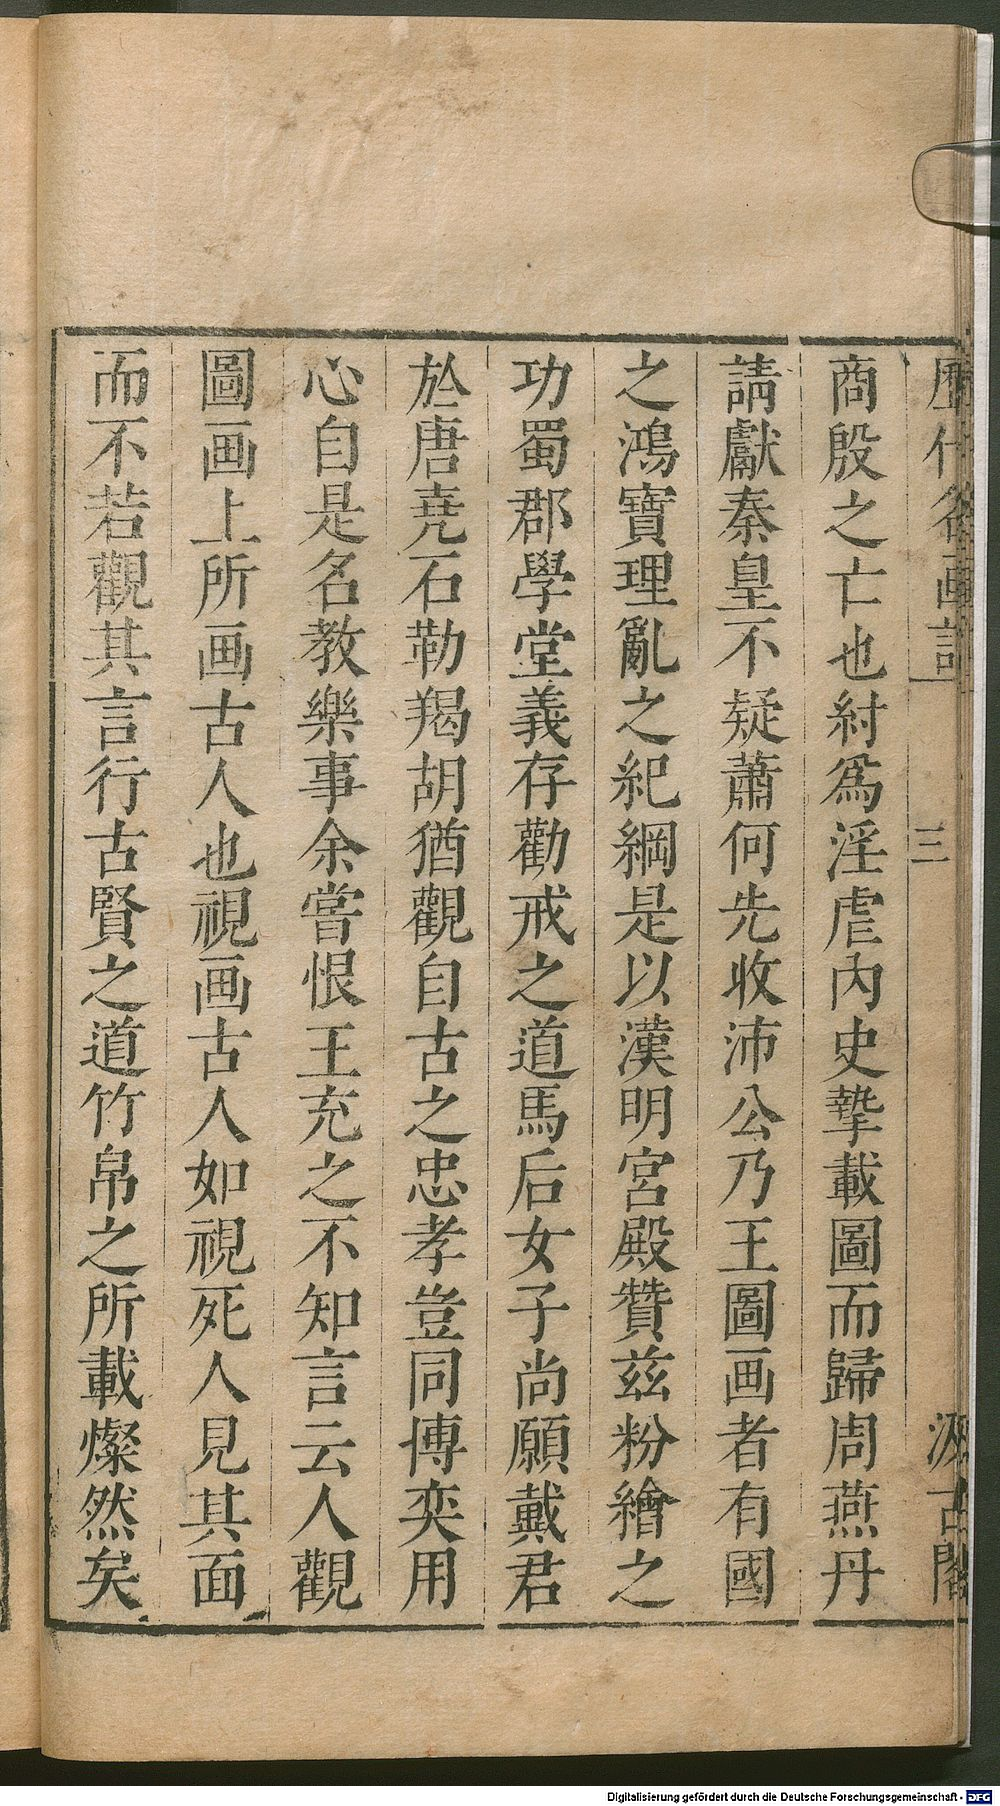 歷代名画記 三 汲古閣
商殷之亡也紂爲淫虐內史摯載圖而歸周燕丹
請獻秦皇不疑蕭何先收沛公乃王圖画者有國
之鴻寶理亂之紀綱是以漢明宮殿贊茲粉繪之
功蜀郡學堂義存勸戒之道馬后女子尚願戴君
於唐堯石勒羯胡猶觀自古之忠孝豈同博奕用
心自是名教樂事余嘗恨王充之不知言云人觀
圖画上所画古人也視画古人如視死人見其面
而不若觀其言行古賢之道竹帛之所載燦然矣
Digitalisierung gefördert durch die Deutsche Forschungsgemeinschaft - DFG